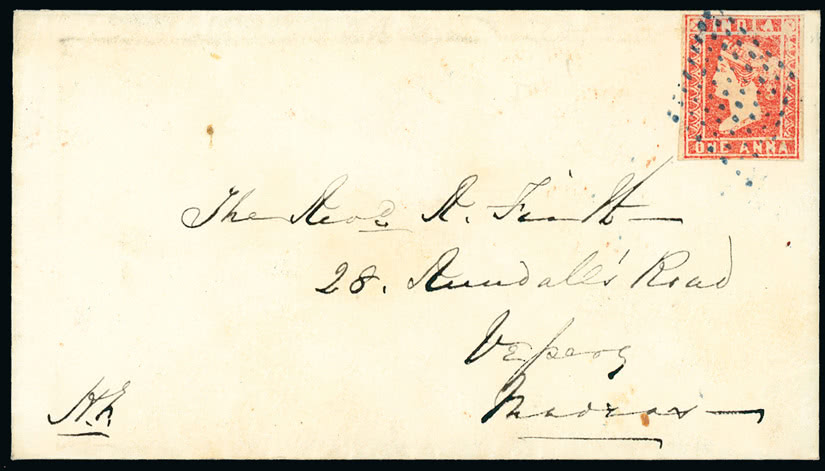 INDIA
ONE ANNA
The Revd. A.
28. Rundall's Road
Vepery
Madras